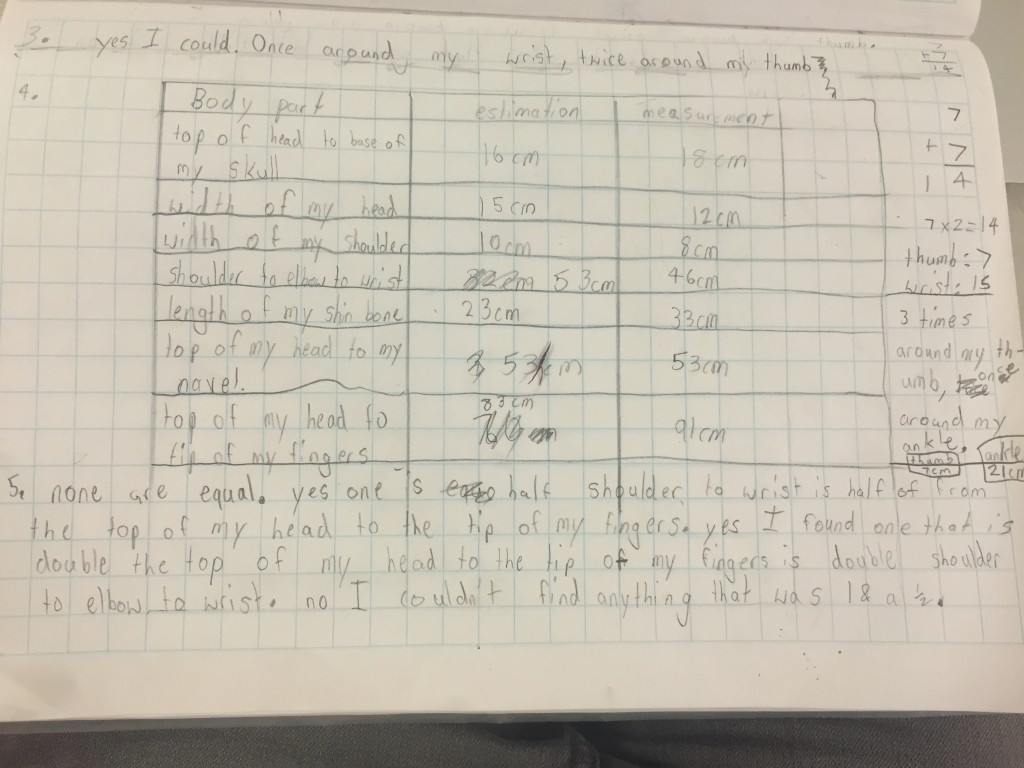 thumb.
3. yes I could. Once around my wrist, twice around my thumb
7
+ 7
14
4.
Body part estimation measurment
top of head to base of my skull 16cm 18cm
width of my head 15cm 12cm
width of my shoulder 10cm 8cm
shoulder to elbow to wrist 53cm 46cm
length of my shin bone 23cm 33cm
top of my head to my navel. 53cm 53cm
top of my head to tip of my fingers 83cm 91cm
7
+ 7
14
7x2=14
thumb: 7
wrist: 15
3 times
around my th-
umb, once
around my
ankle.
thumb
7cm
ankle
21cm
5. none are equal. yes one is half shoulder to wrist is half of from
the top of my head to the tip of my fingers. yes I found one that is
double the top of my head to the tip of my fingers is double shoulder
to elbow to wrist. no I couldn't find anything that was 1 & a ½.